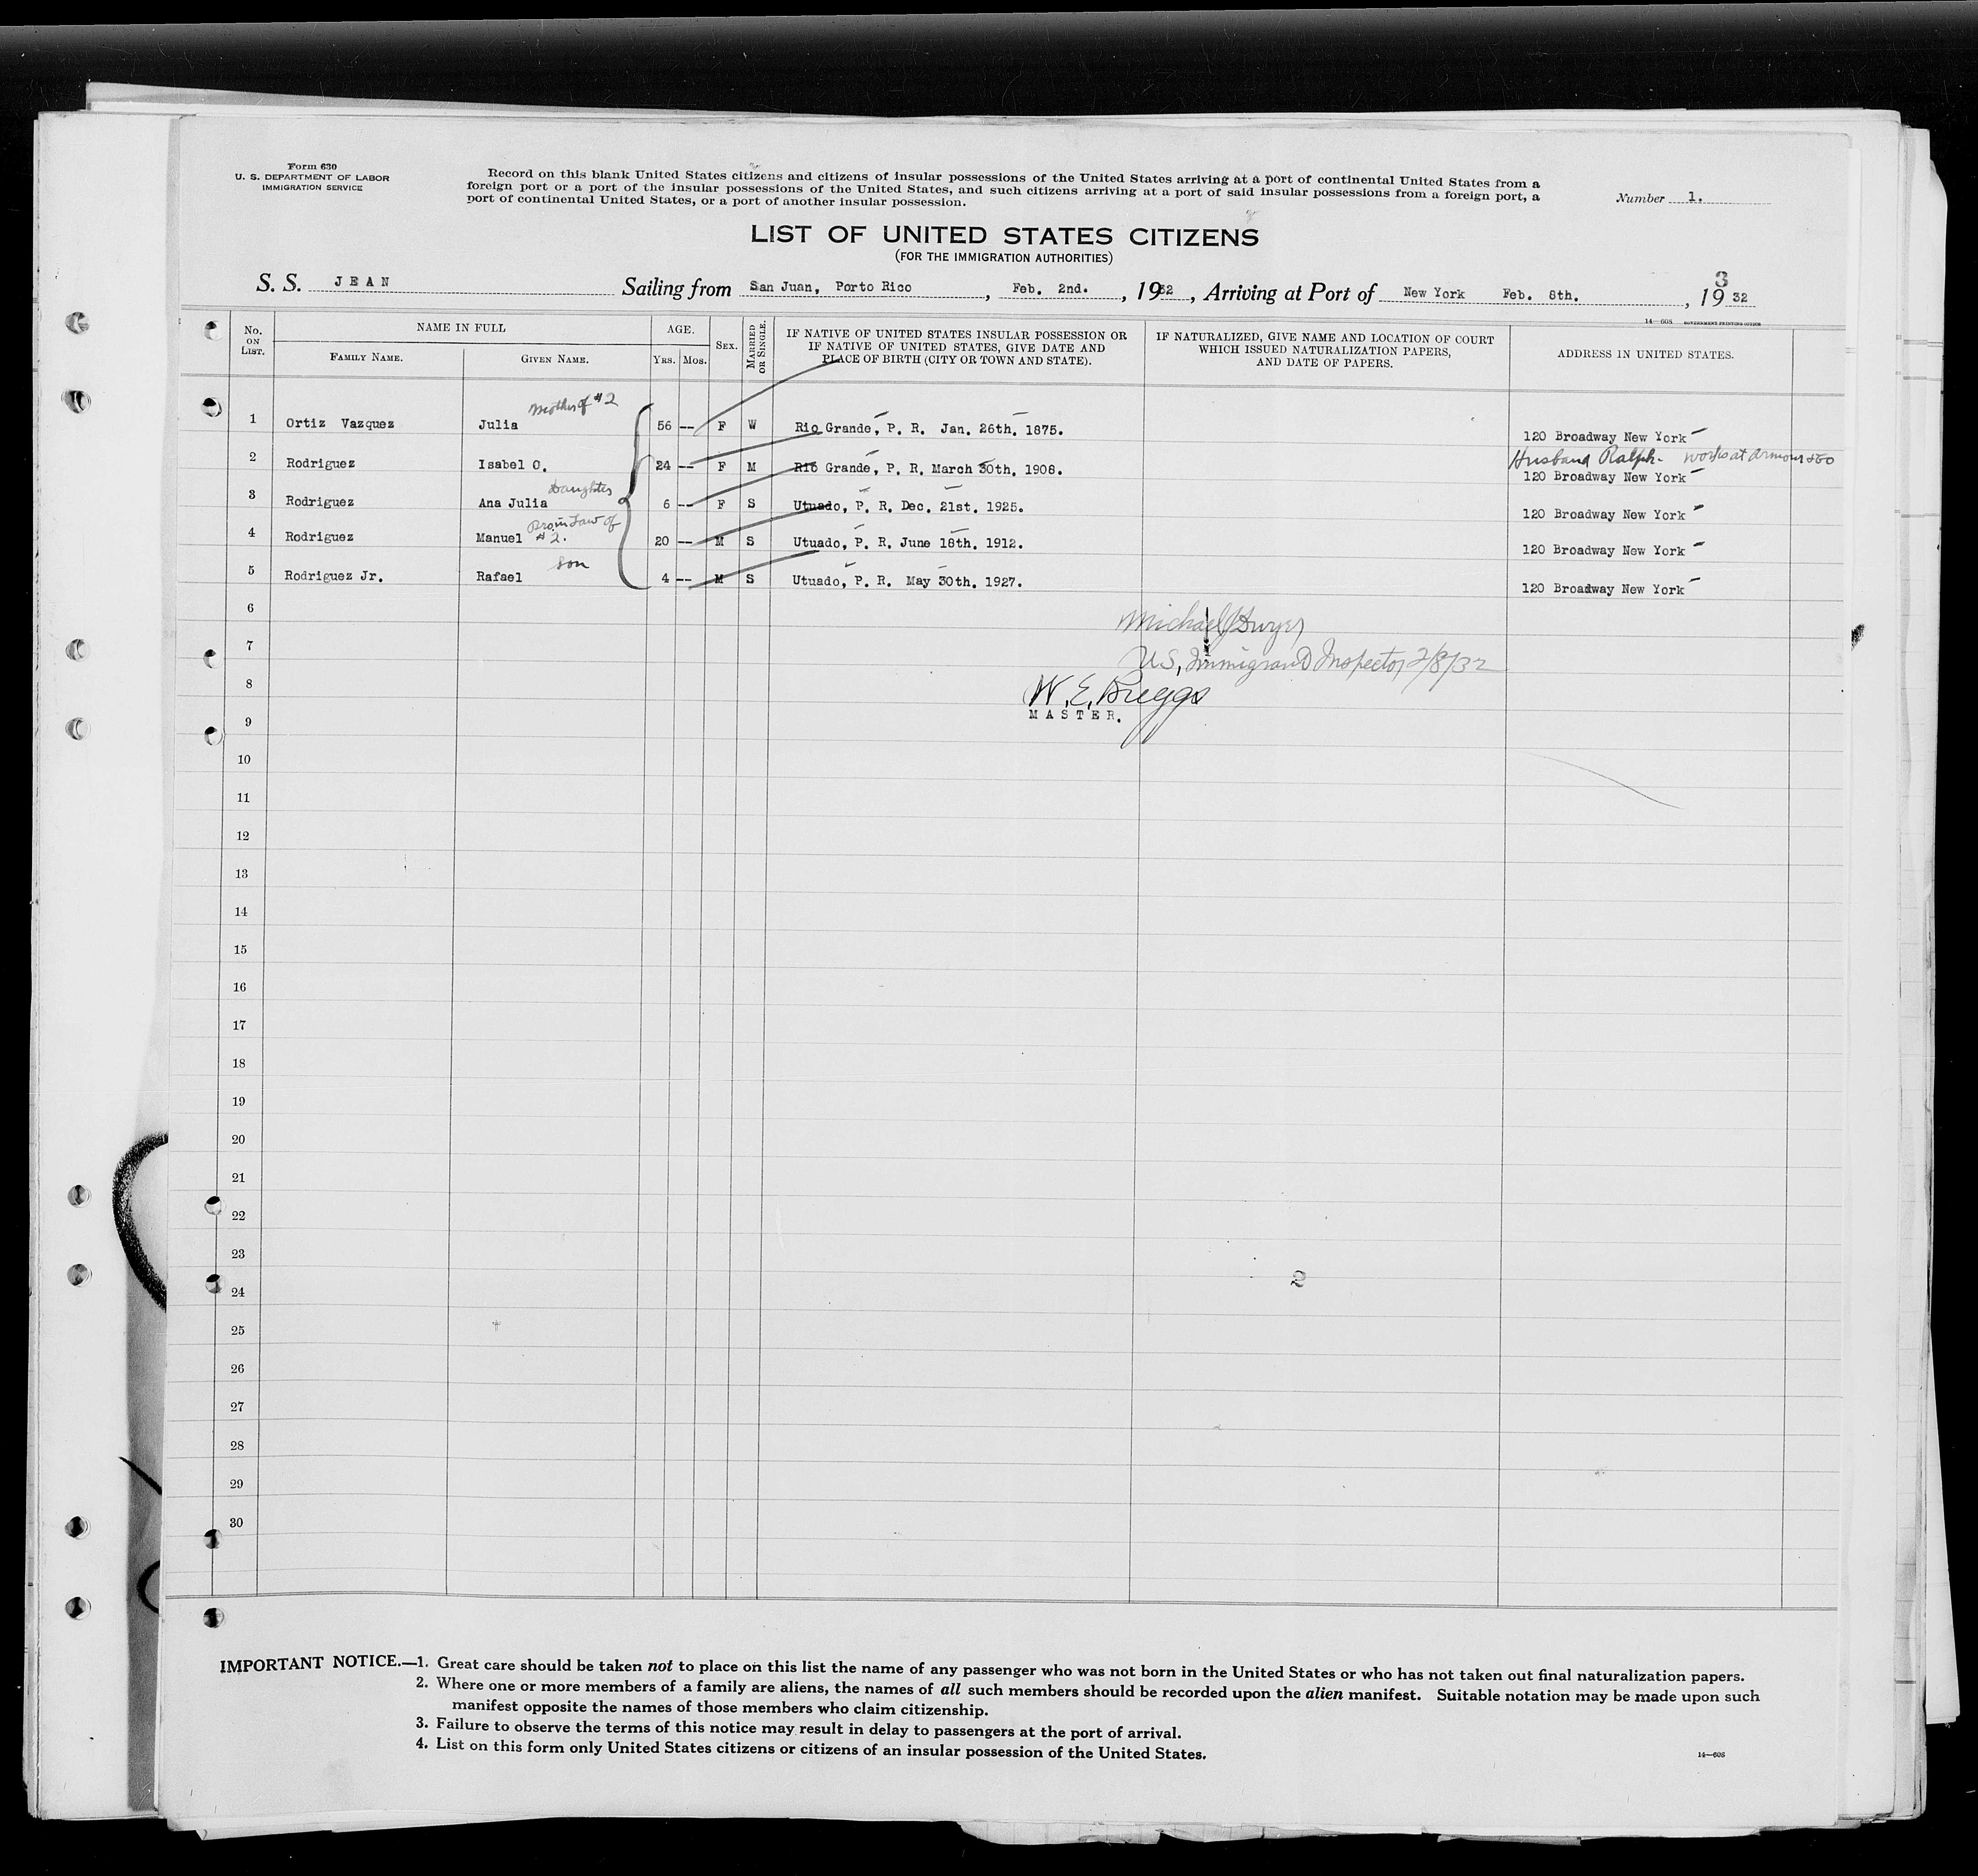 Form 630
U. S. DEPARTMENT OF LABOR
IMMIGRATION SERVICE
Record on this blank United States citizens and citizens of insular possessions of the United States arriving at a port of continental United States from a
foreign port or a port of the insular possessions of the United States, and such citizens arriving at a port of said insular possessions from a foreign port, a
port of continental United States, or a port of another insular possession.
Number 1.
LIST OF UNITED STATES CITIZENS
(FOR THE IMMIGRATION AUTHORITIES)
3
S. S. JEAN Sailing from San Juan, Porto Rico, Feb. 2nd., 1932, Arriving at Port of New York Feb. 8th., 1932
14—608 GOVERNMENT PRINTING OFFICE
No. ON LIST. NAME IN FULL AGE. SEX. MARRIED OR SINGLE. IF NATIVE OF UNITED STATES INSULAR POSSESSION OR IF NATIVE OF UNITED STATES, GIVE DATE AND PLACE OF BIRTH (CITY OR TOWN AND STATE). IF NATURALIZED, GIVE NAME AND LOCATION OF COURT WHICH ISSUED NATURALIZATION PAPERS, AND DATE OF PAPERS. ADDRESS IN UNITED STATES.
FAMILY NAME. GIVEN NAME. YRS. MOS.
Mother of #2
1 Ortiz Vazquez Julia 56 -- F W Rio Grande, P. R. Jan. 26th. 1875. 120 Broadway New York
Husband Ralph. works at Armour & Co
2 Rodriguez Isabel O. 24 -- F M Rio Grande, P. R. March 30th. 1908. 120 Broadway New York
Daughter
3 Rodriguez Ana Julia 6 -- F S Utuado, P. R. Dec. 21st. 1925. 120 Broadway New York
Bro in Law of
4 Rodriguez Manuel #2. 20 -- M S Utuado, P. R. June 18th. 1912. 120 Broadway New York
Son
5 Rodriguez Jr. Rafael 4 -- M S Utuado, P. R. May 30th. 1927. 120 Broadway New York
6
Michael J Dwyer
7
U.S. Immigrant Inspector 2/8/32
8
W. E. Breggs
MASTER.
9
10
11
12
13
14
15
16
17
18
19
20
21
22
23
24
25
26
27
28
29
30
IMPORTANT NOTICE.—1. Great care should be taken not to place on this list the name of any passenger who was not born in the United States or who has not taken out final naturalization papers.
2. Where one or more members of a family are aliens, the names of all such members should be recorded upon the alien manifest. Suitable notation may be made upon such
manifest opposite the names of those members who claim citizenship.
3. Failure to observe the terms of this notice may result in delay to passengers at the port of arrival.
4. List on this form only United States citizens or citizens of an insular possession of the United States.
14—608